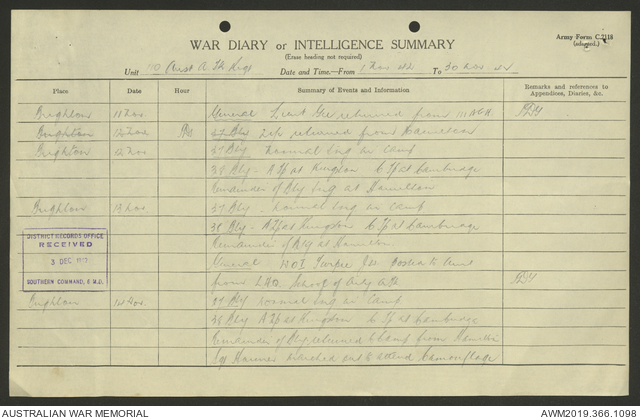 Army Form C.2118
WAR DIARY or INTELLIGENCE SUMMARY
(Erase heading not required)
Unit 110 A Tk Regt Date and Time.—From 1 Nov 42 To 30 Nov 42
Place Date Hour Summary of Events and Information Remarks and references to Appendices, Diaries, &c.
Brighton 11 Nov General Lieut returned from
Brighton 12 Nov 37 Bty returned from Hamilton
Brighton 12 Nov 37 Bty Normal trg in camp
38 Bty - A Tp at Kingston C Tp at Cambridge
Remainder of Bty trg at Hamilton
Brighton 13 Nov 37 Bty - normal trg in camp
38 Bty - A Tp at Kingston C Tp at Cambridge
Remainder of Bty at Hamilton
DISTRICT RECORDS OFFICE
RECEIVED
3 DEC
SOUTHERN COMMAND, 6 M.D.
General WO I posted to unit
from LHQ School of Arty
Brighton 14 Nov 37 Bty normal trg in camp
38 Bty A Tp at Kingston C Tp at Cambridge
Remainder of Bty returned to camp from Hamilton
marched out to attend Camouflage
AUSTRALIAN WAR MEMORIAL
AWM2019.366.1098